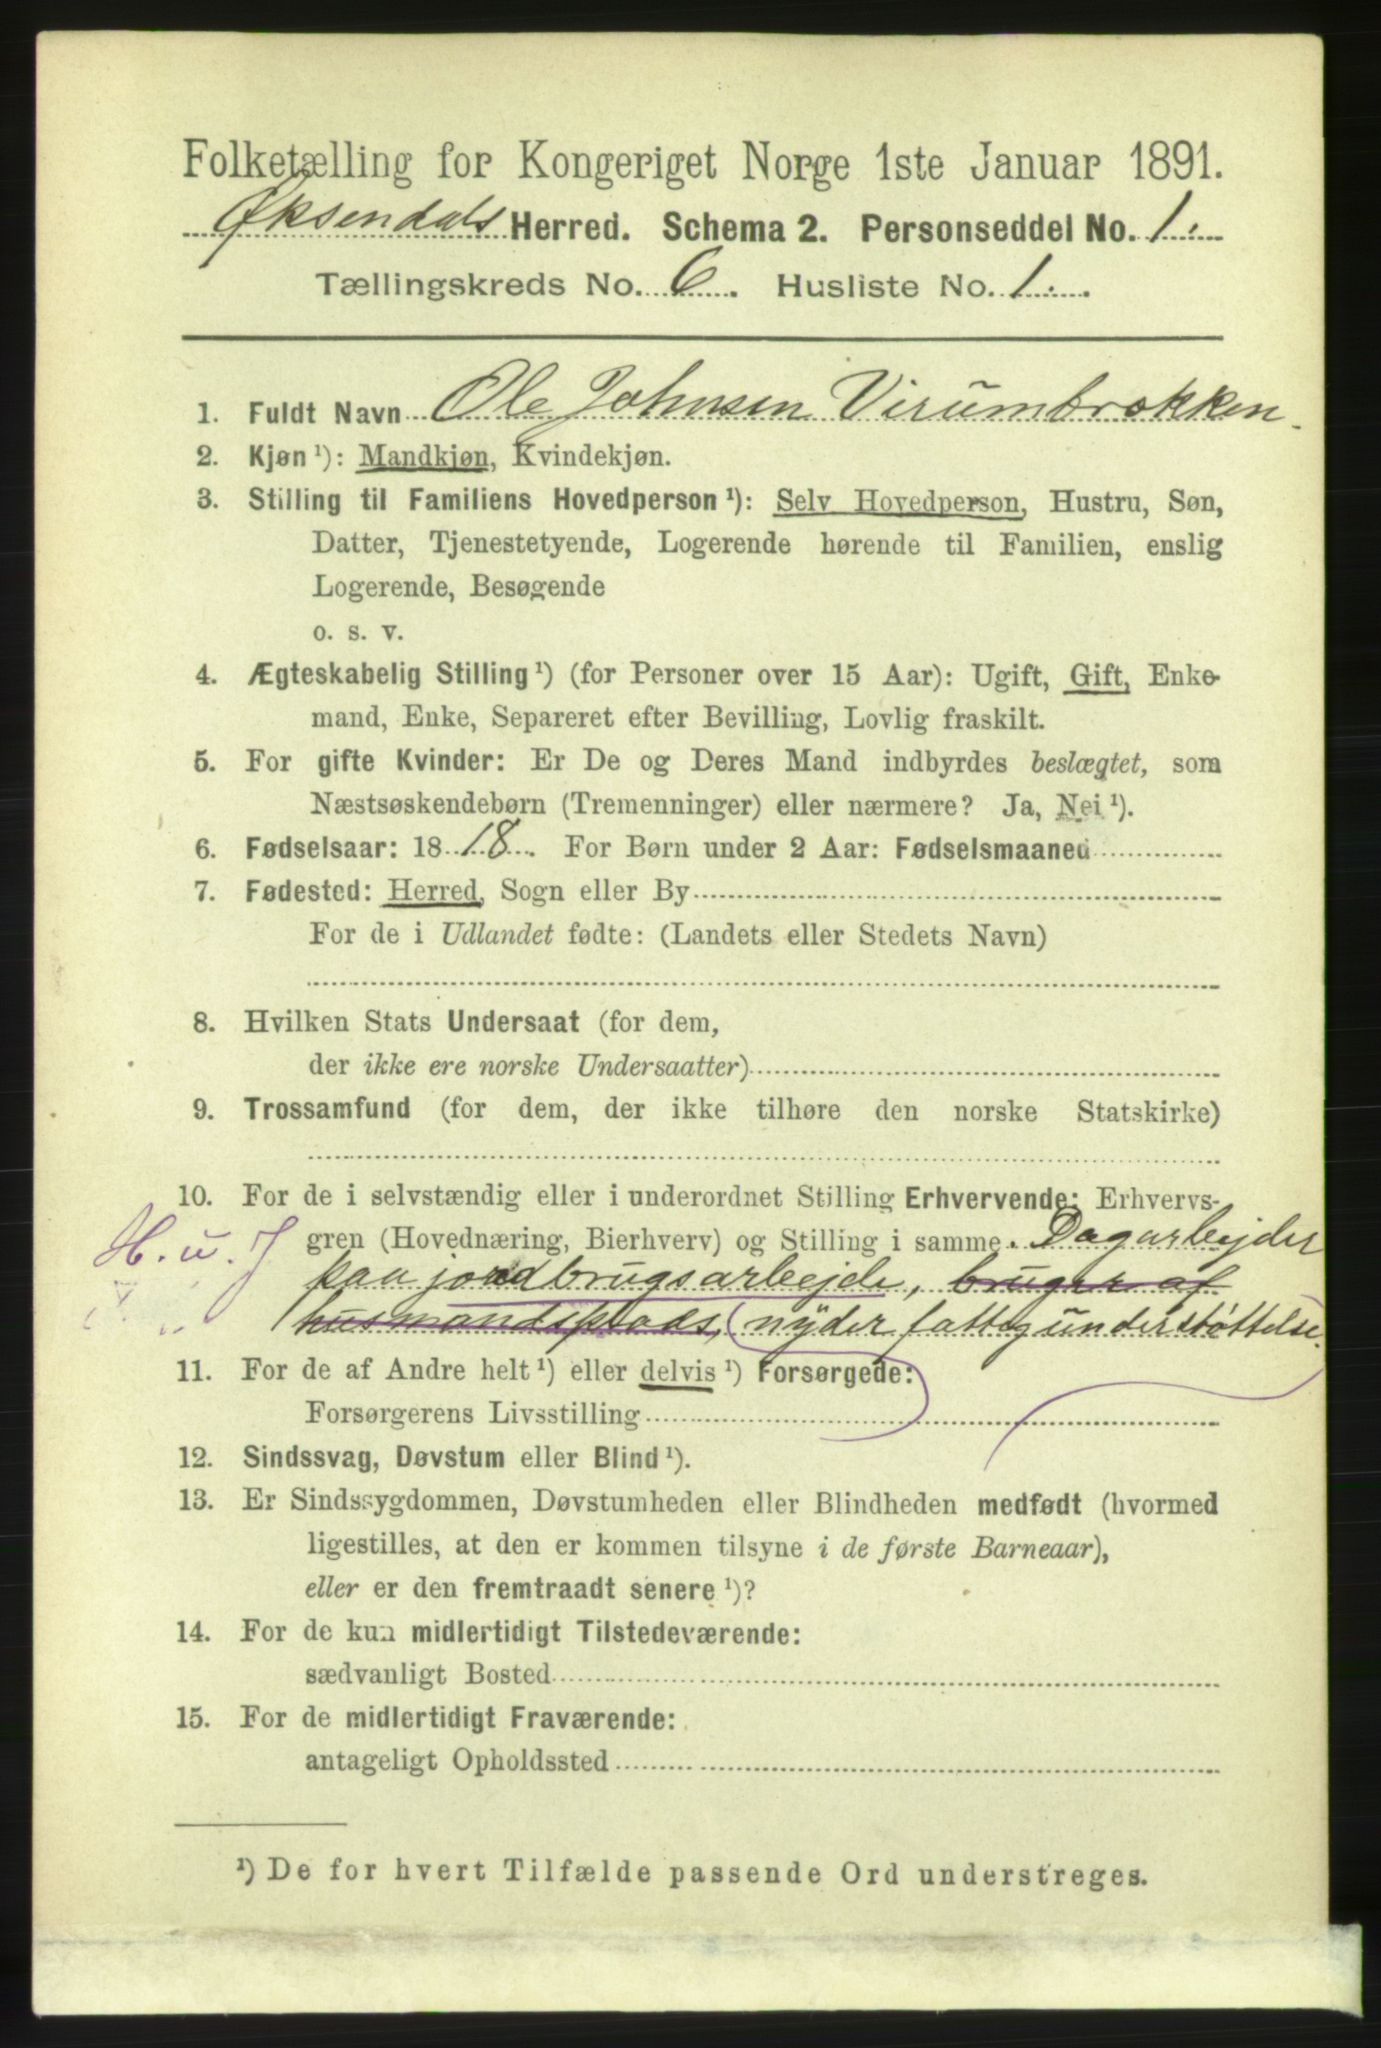 Folketælling for Kongeriget Norge 1ste Januar 1891.
Øksendals Herred. Schema 2. Personseddel No. 1.
Tællingskreds No. 6. Husliste No. 1.
1. Fuldt Navn Ole Johnsen Virumbrækken.
2. Kjøn ¹): Mandkjøn, Kvindekjøn.
3. Stilling til Familiens Hovedperson ¹): Selv Hovedperson, Hustru, Søn,
Datter, Tjenestetyende, Logerende hørende til Familien, enslig
Logerende, Besøgende
o. s. v.
4. Ægteskabelig Stilling ¹) (for Personer over 15 Aar): Ugift, Gift, Enke-
mand, Enke, Separeret efter Bevilling, Lovlig fraskilt.
5. For gifte Kvinder: Er De og Deres Mand indbyrdes beslægtet, som
Næstsøskendebørn (Tremenninger) eller nærmere? Ja, Nei ¹).
6. Fødselsaar: 1818. For Børn under 2 Aar: Fødselsmaaned
7. Fødested: Herred, Sogn eller By
For de i Udlandet fødte: (Landets eller Stedets Navn)
8. Hvilken Stats Undersaat (for dem,
der ikke ere norske Undersaatter)
9. Trossamfund (for dem, der ikke tilhøre den norske Statskirke)
10. For de i selvstændig eller i underordnet Stilling Erhvervende: Erhvervs-
H. u. J gren (Hovednæring, Bierhverv) og Stilling i samme. Dagarbejder
paa jordbrugsarbejde, bruger af
husmandsplads, nyder fattigunderstøttelse.
11. For de af Andre helt ¹) eller delvis ¹) Forsørgede:
Forsørgerens Livsstilling
12. Sindssvag, Døvstum eller Blind ¹).
13. Er Sindssygdommen, Døvstumheden eller Blindheden medfødt (hvormed
ligestilles, at den er kommen tilsyne i de første Barneaar),
eller er den fremtraadt senere ¹)?
14. For de kun midlertidigt Tilstedeværende:
sædvanligt Bosted
15. For de midlertidigt Fraværende:
antageligt Opholdssted
¹) De for hvert Tilfælde passende Ord understreges.